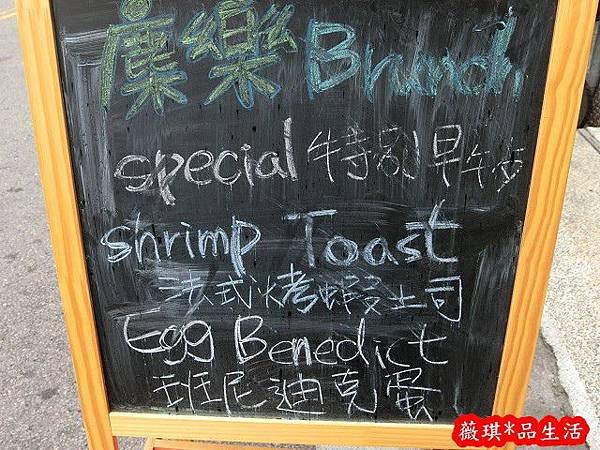 麋樂 Brunch
special 特別早午餐
shrimp Toast
法式烤蝦吐司
Egg Benedict
班尼迪克蛋
薇琪*品生活